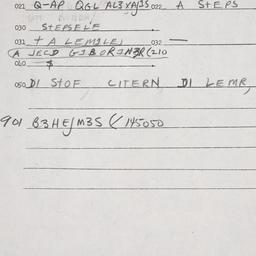 021 Q-AP QGL AL3YAJS 022 A STEPS
030 STEPSELE
031 + A LEMILEI 032 —
A JECD GIBORIN3R (210
060 $
050 DI STOF CITERN DI LEMR,
901 B3HE/M3S ( 145050